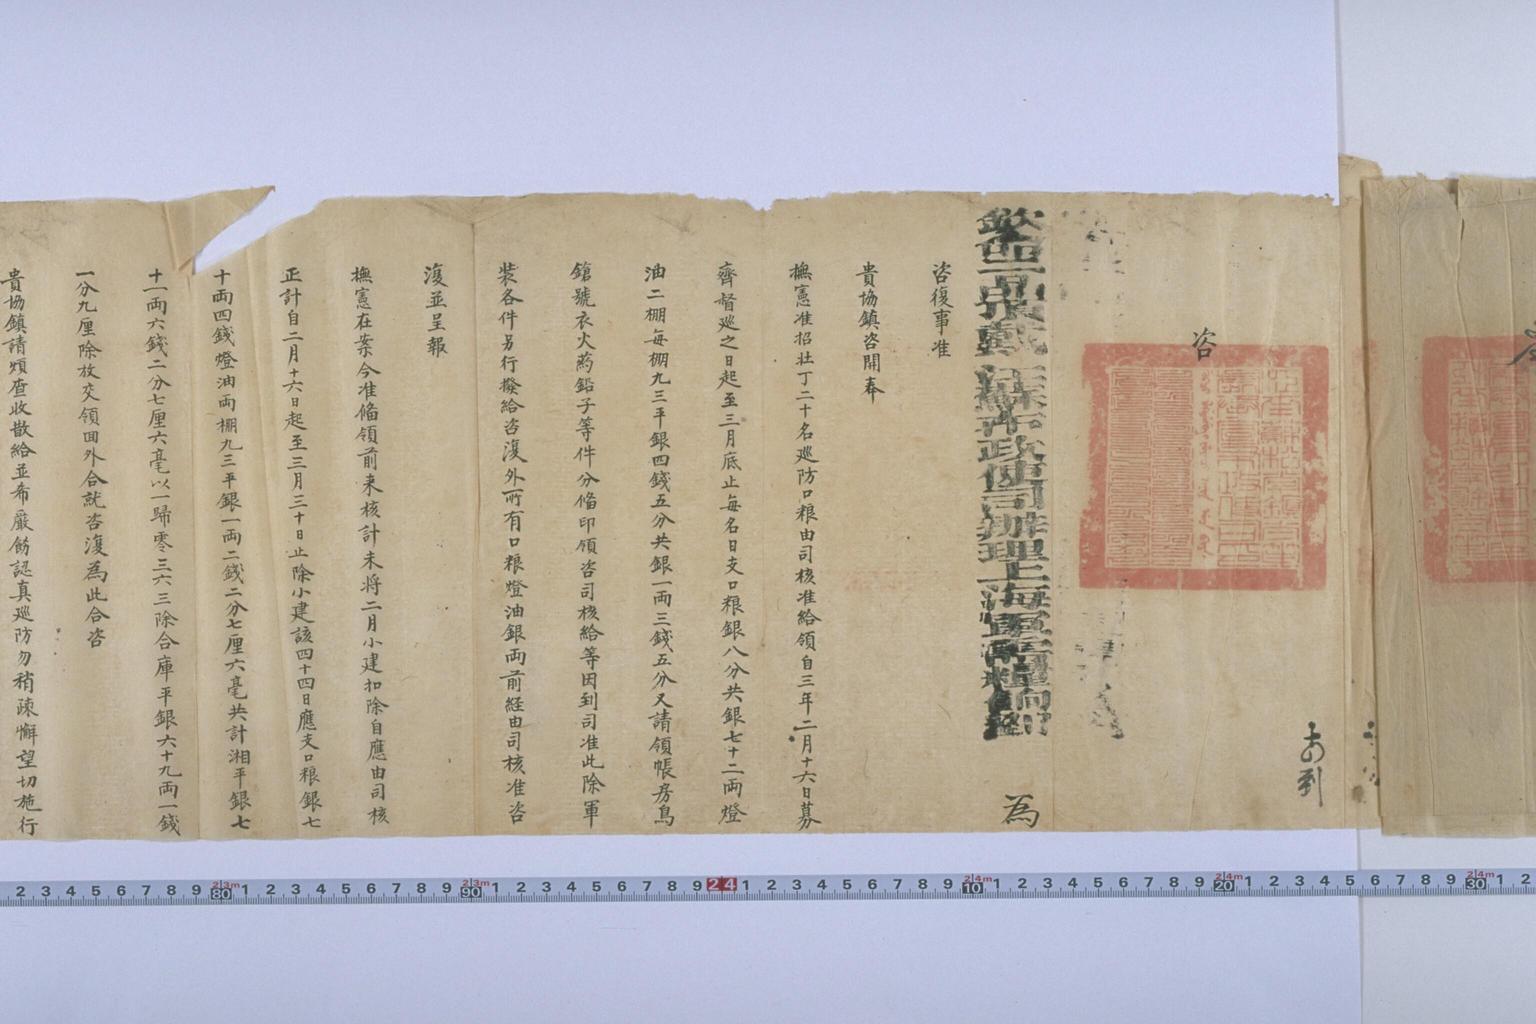 咨
欽加二品頂戴江蘇布政使司辦理上海軍需糧餉劉 為
咨復事准
貴協鎮咨開奉
撫憲准招壯丁二十名巡防口粮由司核准給領自三年二月十六日募
齊督巡之日起至三月底止每名日支口粮銀八分共銀七十二兩燈
油二棚每棚九三平銀四錢五分共銀一兩三錢五分又請領帳房鳥
鎗號衣火葯鉛子等件分俻印領咨司核給等因到司准此除軍
裝各件另行撥給咨復外所有口粮燈油銀兩前経由司核准咨
復並呈報
撫憲在案今准俻領前来核計未將二月小建扣除自應由司核
正計自二月十六日起至三月三十日止除小建該四十四日應支口粮銀七
十兩四錢燈油兩棚九三平銀一兩二錢二分七厘六毫共計湘平銀七
十一兩六錢二分七厘六毫以一歸零三六三除合庫平銀六十九兩一錢
一分九厘除放交領囬外合就咨復為此合咨
貴協鎮請煩查收散給並希嚴飭認真巡防勿稍疎懈望切施行